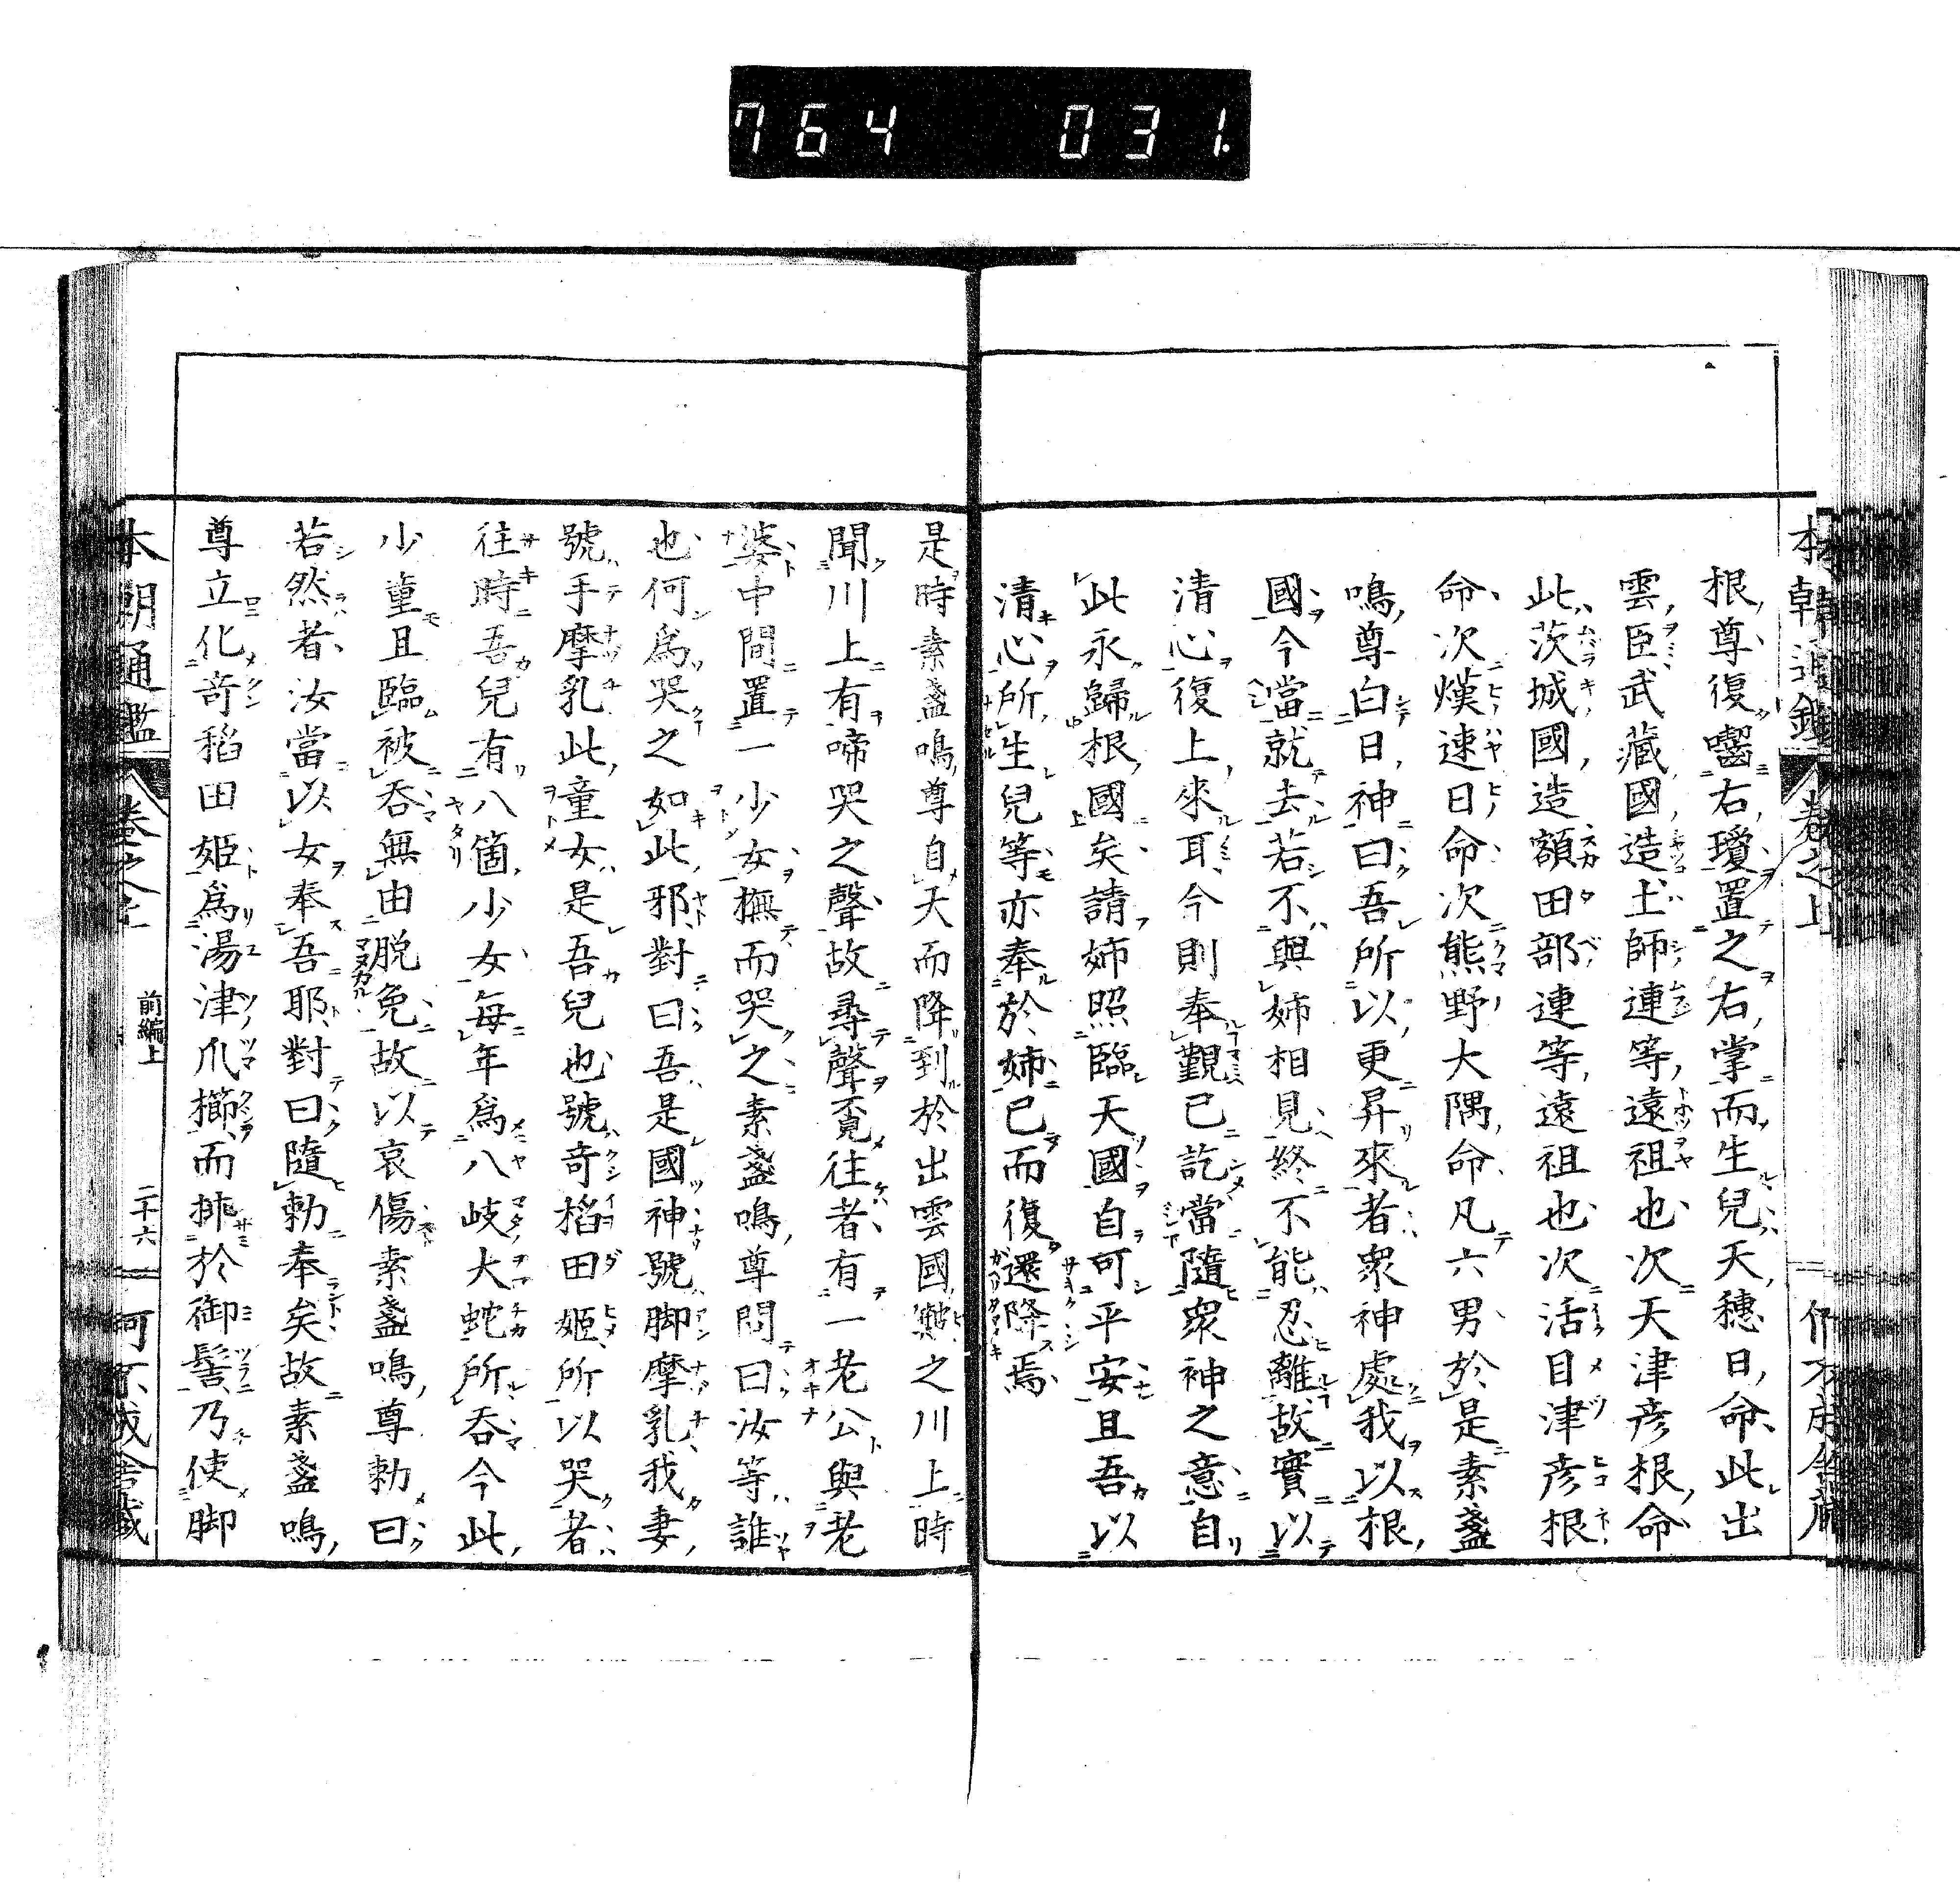 764 031.
根尊復囓右瓊置之右掌而生兒天穗日命此出
雲臣武藏國造土師連等遠祖也次天津彦根命
此茨城國造額田部連等遠祖也次活目津彦根
命次熯速日命次熊野大隅命凡六男於是素盞
鳴尊白日神曰吾所以更昇來者衆神處我以根
國今當就去若不與姉相見終不能忍離故實以
清心復上來耳今則奉覲已訖當隨衆神之意自
此永歸根國矣請姉照臨天國自可平安且吾以
清心所生兒等亦奉於姉已而復還降焉
是時素盞鳴尊自天而降到於出雲國簸之川上時
聞川上有啼哭之聲故尋聲覓往者有一老公與老
婆中間置一少女撫而哭之素盞鳴尊問曰汝等誰
也何爲哭之如此邪對曰吾是國神號脚摩乳我妻
號手摩乳此童女是吾兒也號奇稻田姬所以哭者
往時吾兒有八箇少女每年爲八岐大蛇所呑今此
少童且臨被呑無由脱免故以哀傷素盞鳴尊勅曰
若然者汝當以女奉吾耶對曰隨勅奉矣故素盞鳴
尊立化奇稻田姬爲湯津爪櫛而挿於御髻乃使脚
本朝通鑑 卷之 前編上 二十六